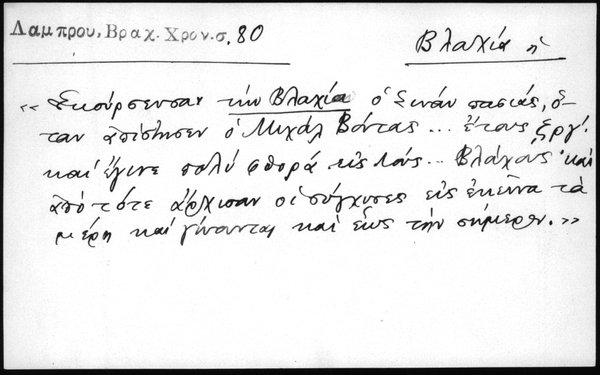 Λαμπρου, Βραχ. Χρον. σ. 80
Βλαχία ἡ
«Ἐκούρσευσαν τὴν Βλαχία ὁ Σινάν πασιάς, ὅ-
ταν ἀπίστησεν ὁ Μιχάλ Βόντας... ἔτους ζργ΄.
καὶ ἔγινε πολύ φθορά εἰς τούς... Βλάχους καὶ
ἀπό τότε ἄρχισαν οἱ σύγχυσες εἰς ἐκεῖνα τὰ
μέρη καὶ γίνονται καὶ ἕως τὴν σήμερον.»